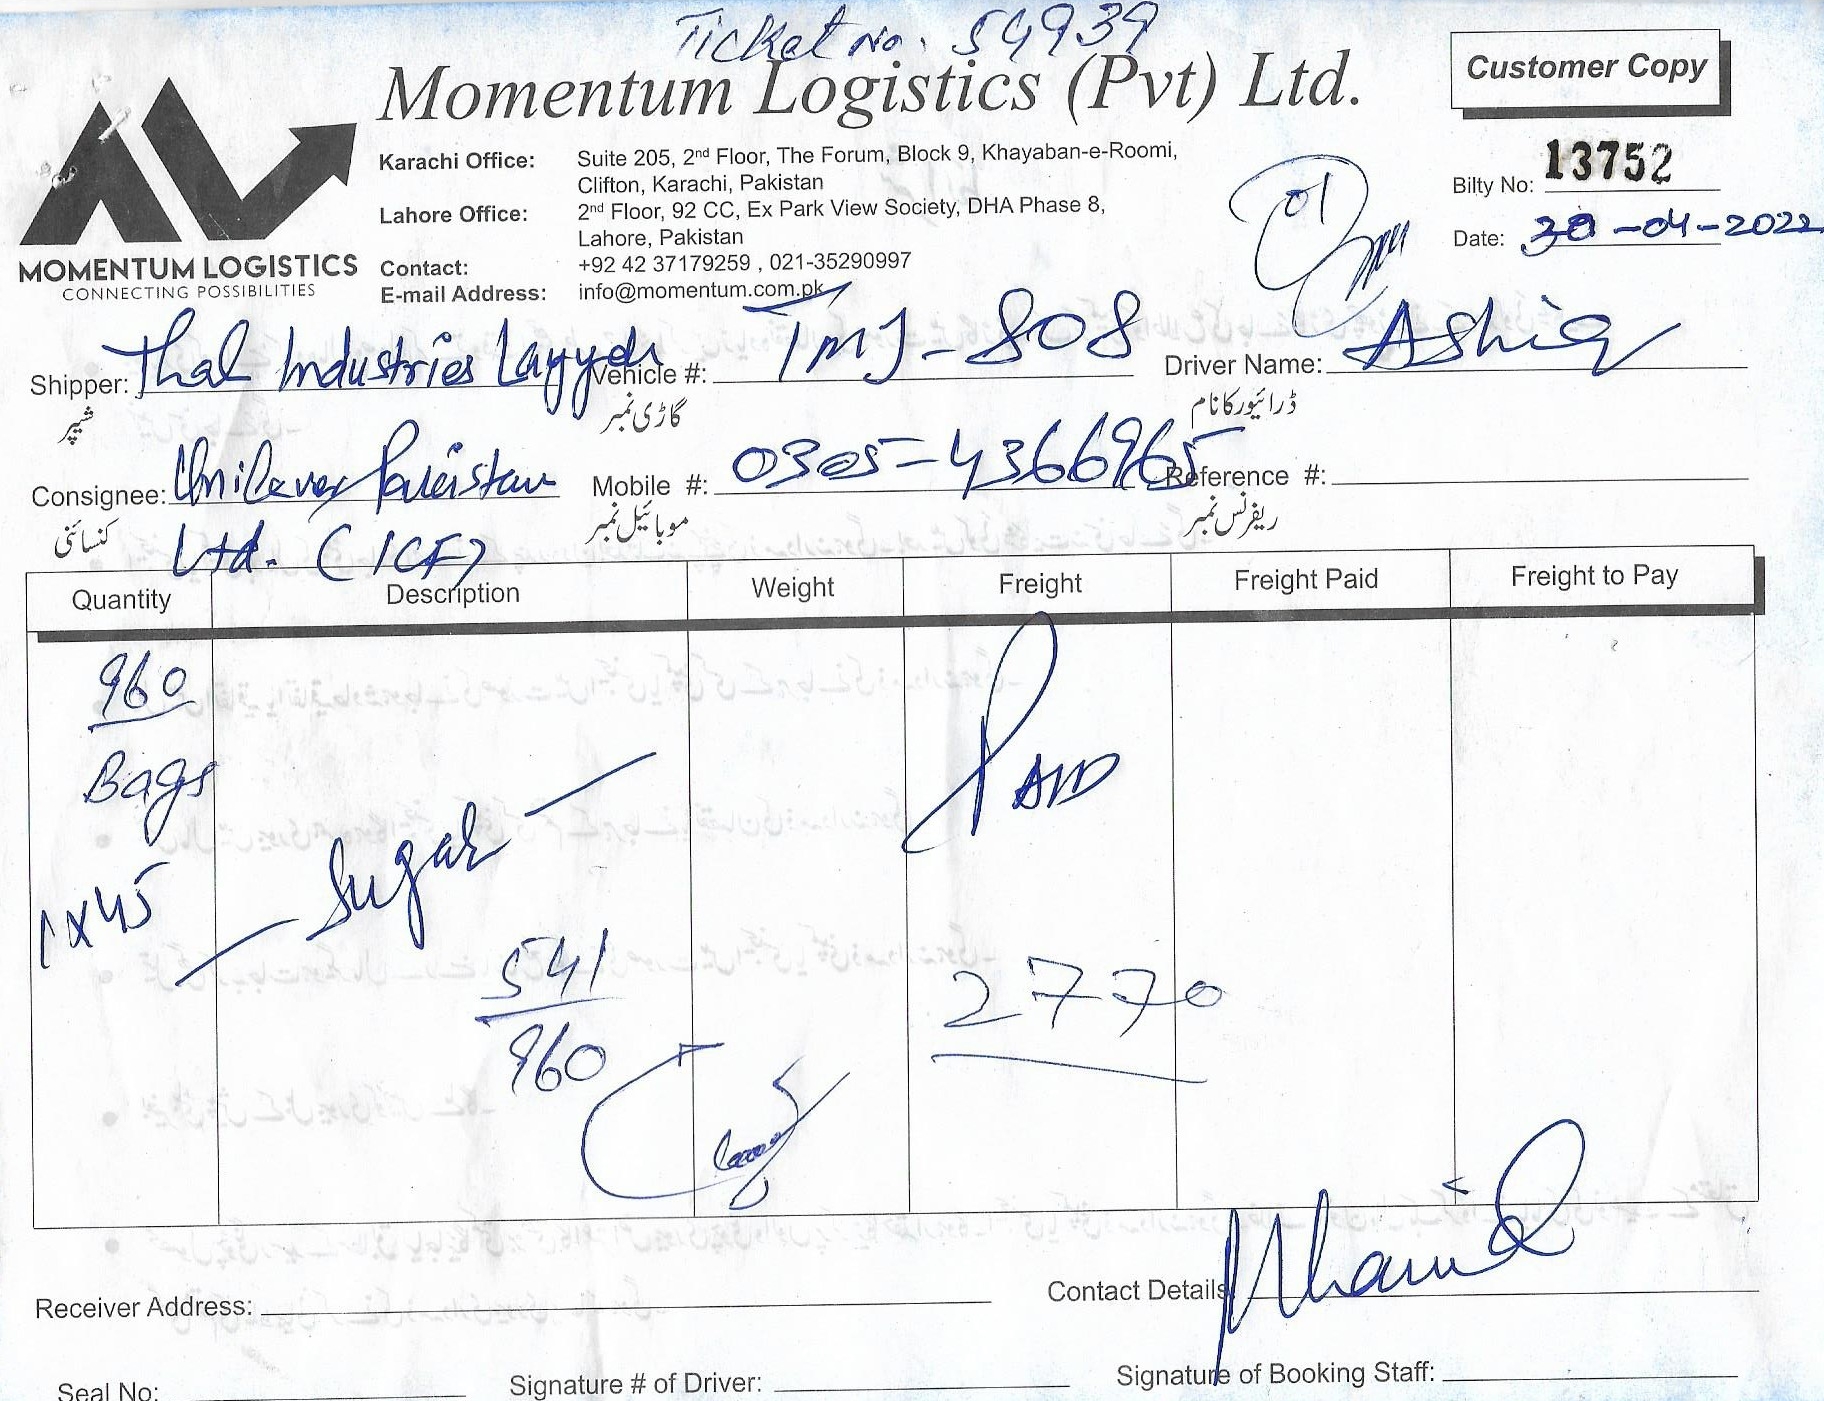 Ticket no. 54939
Momentum Logistics (Pvt) Ltd.
Customer Copy
MOMENTUM LOGISTICS
CONNECTING POSSIBILITIES
Karachi Office: Suite 205, 2nd Floor, The Forum, Block 9, Khayaban-e-Roomi,
Clifton, Karachi, Pakistan
Lahore Office: 2nd Floor, 92 CC, Ex Park View Society, DHA Phase 8,
Lahore, Pakistan
Contact: +92 42 37179259 , 021-35290997
E-mail Address: info@momentum.com.pk
Bilty No: 13752
Date: 30-04-2022
01
Shipper: Thal Industries Layyah Vehicle #: TMJ-808 Driver Name: Ashiq
شیپر گاڑی نمبر ڈرائیور کا نام
Consignee: Unilever Pakistan Mobile #: 0305-4366965 Reference #:
کنسائنی موبائیل نمبر ریفرنس نمبر
Ltd. (ICF)
Quantity Description Weight Freight Freight Paid Freight to Pay
960
Bags Paid
- Sugar -
1x45
541 2770
960
Receiver Address: Contact Details
Seal No: Signature # of Driver: Signature of Booking Staff: